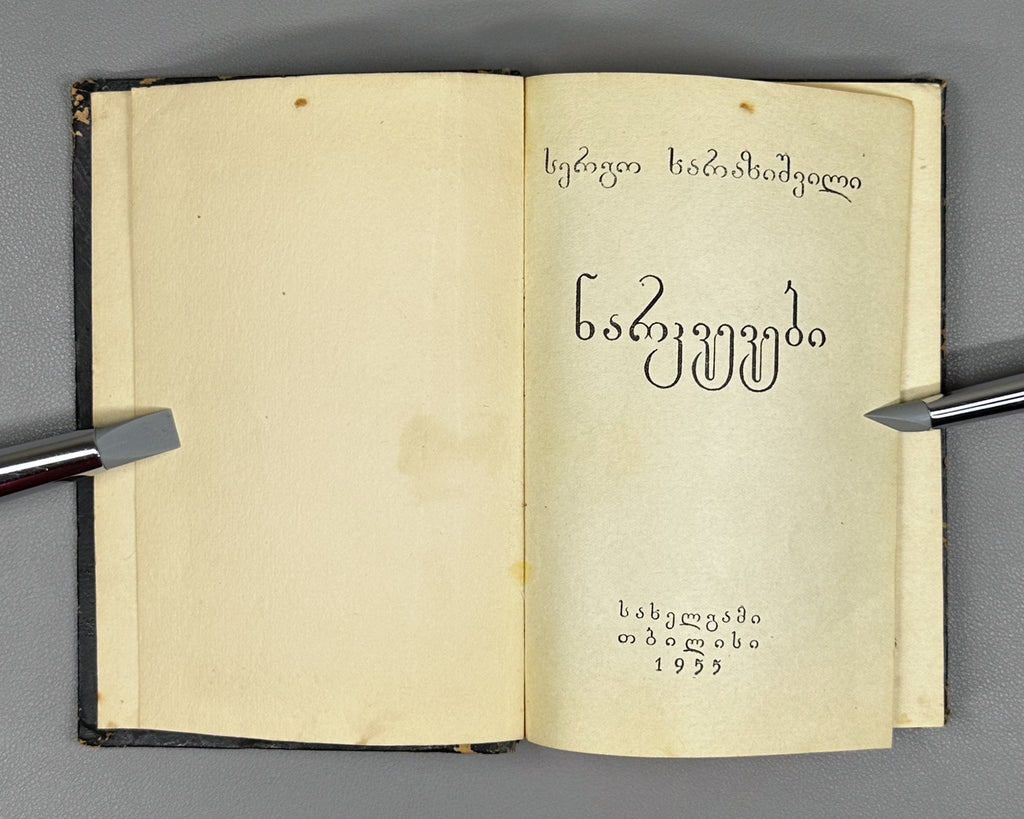 სერგო ხარაზიშვილი
ნარკვევები
სახელგამი
თბილისი
1955